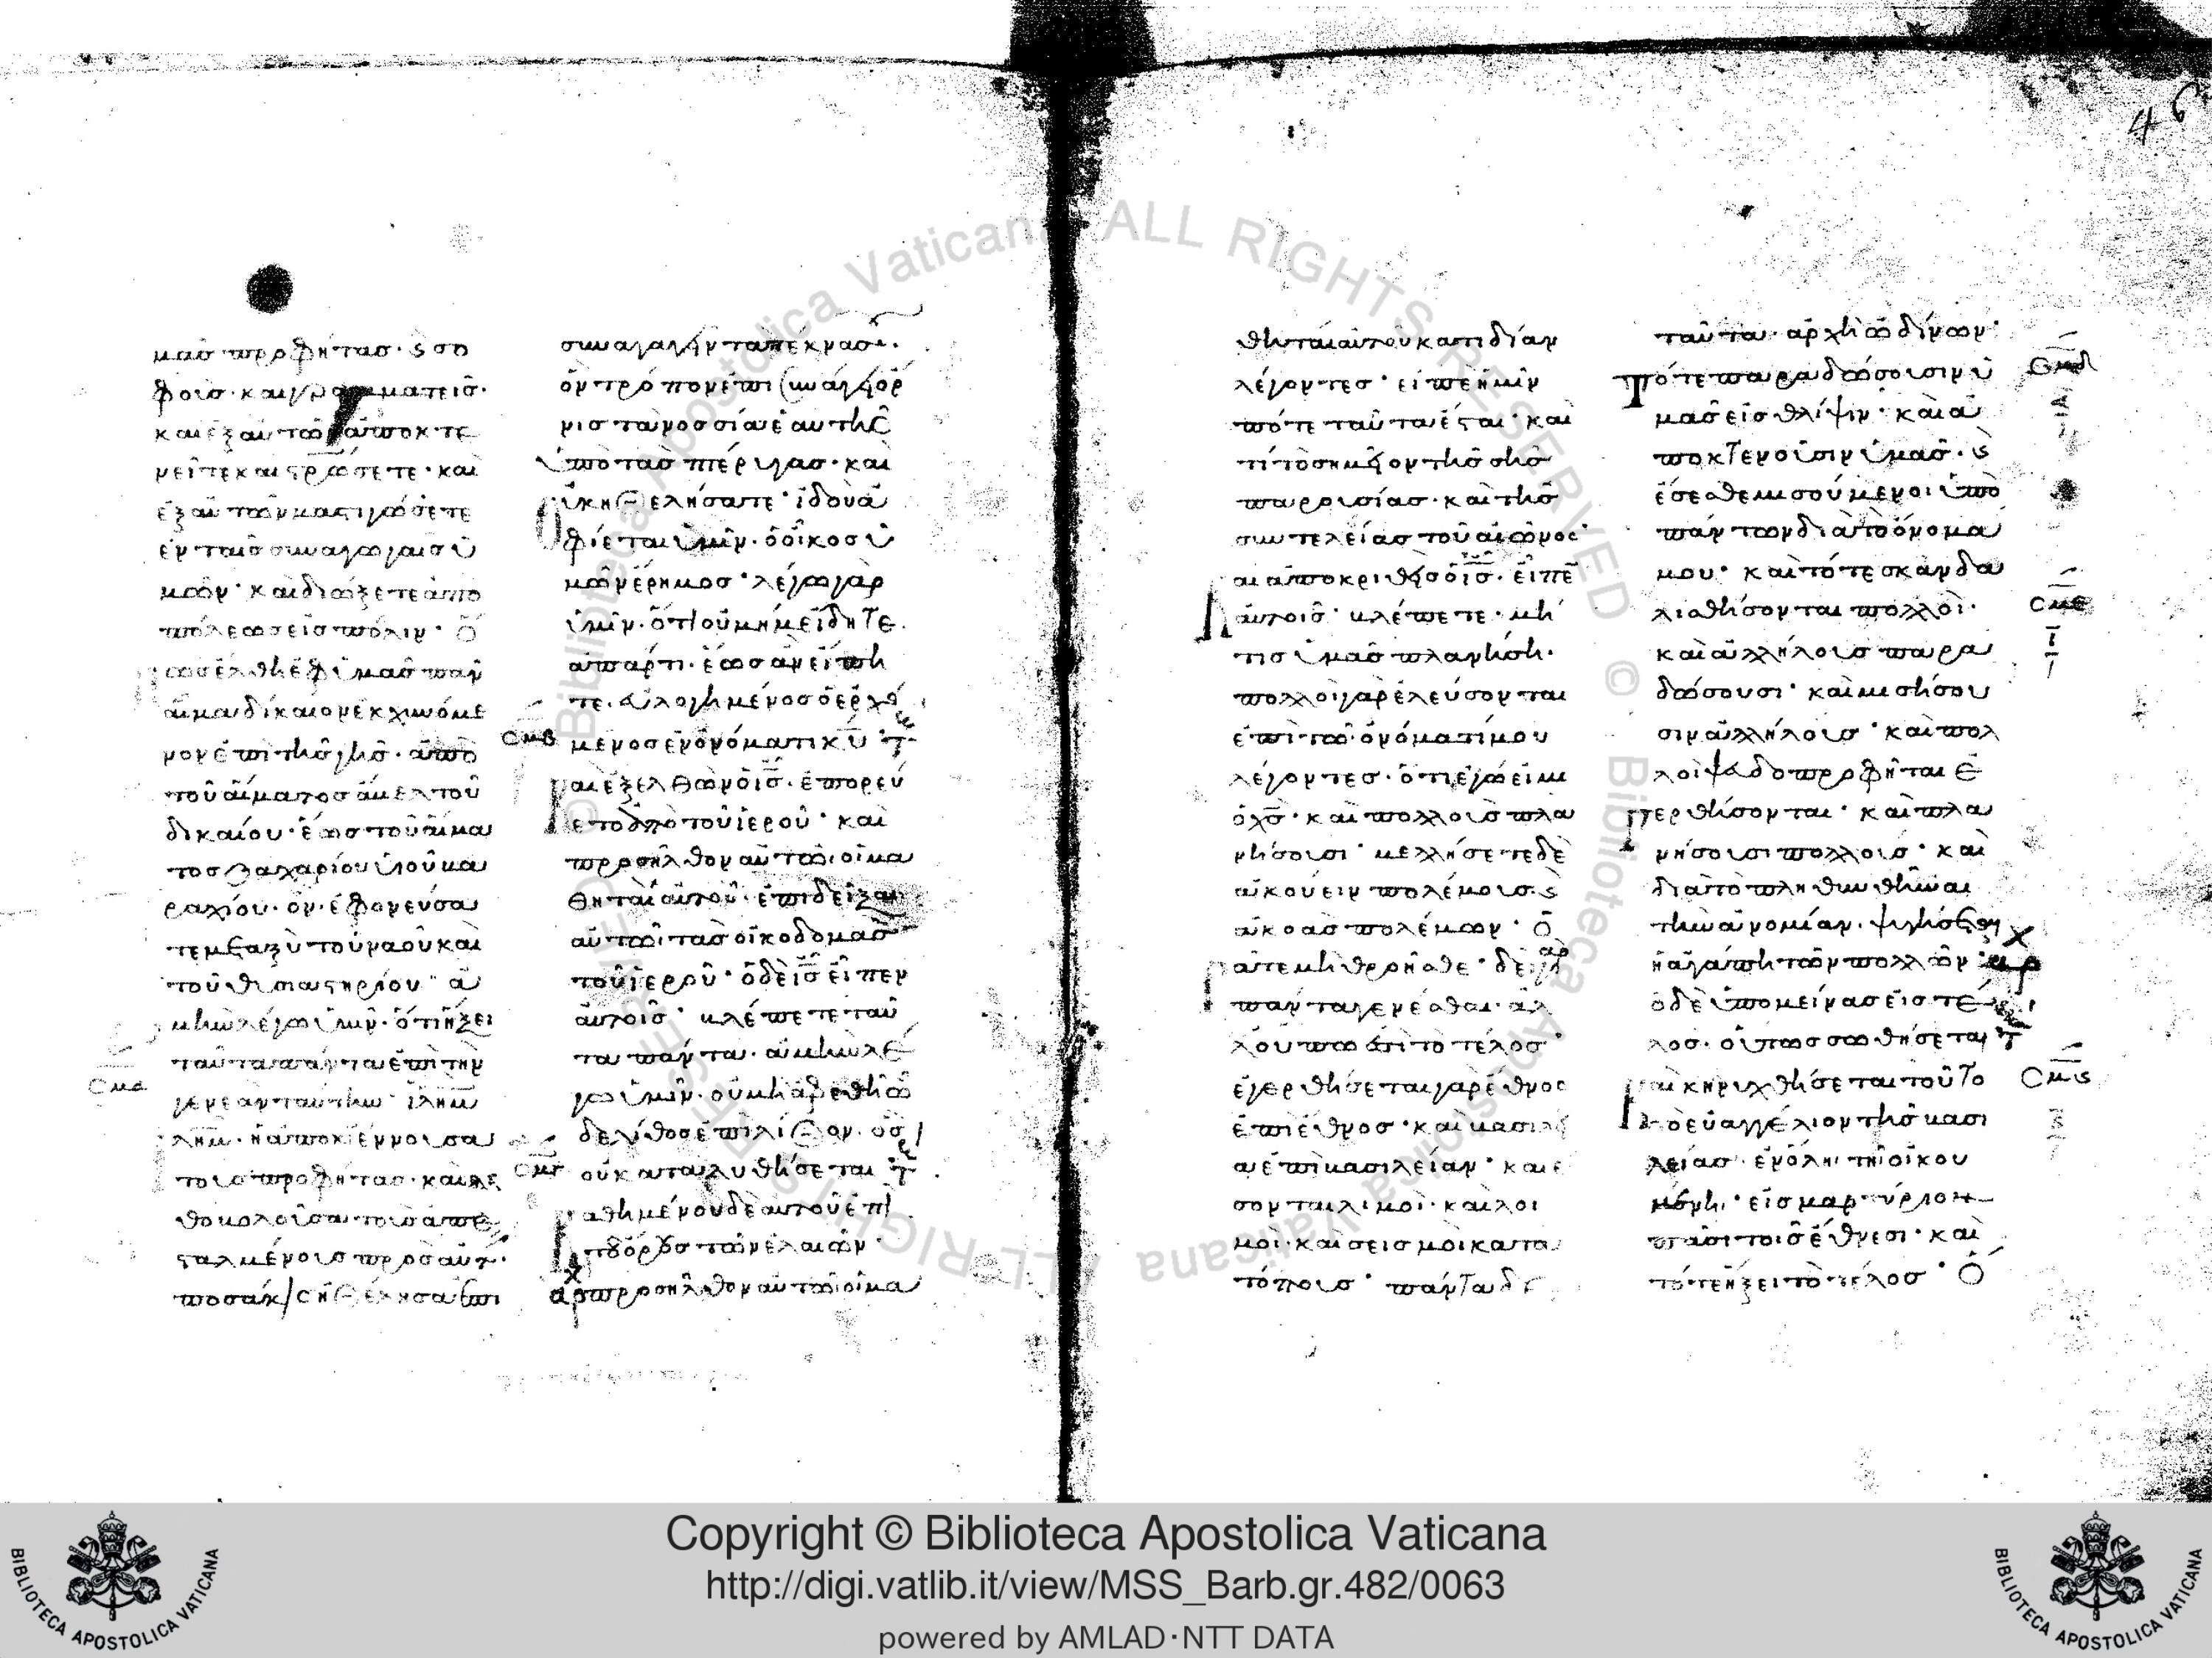 μασ προφήτασ· ϛ σο
φοὺσ· καὶ γραμματεῖσ·
καὶ ἐξ αὐτῶν ἀποκτε
νεῖτε καὶ σταυρώσετε· καὶ
ἐξ αὐτῶν μαστιγώσετε
ἐν ταῖσ συναγωγαῖσ ὑ
μῶν· καὶ διώξετε ἀπὸ
πόλεωσ εἰσ πόλιν· ὅ
πωσ ἔλθη ἐφ ὑμᾶσ πᾶν
αἷμα δίκαιον ἐκχυνόμε
νον ἐπὶ τῆσ γῆσ· ἀπὸ
τοῦ αἵματοσ ἄμελ τοῦ
δικαίου· ἕωσ τοῦ αἵμα
τοσ ζαχαρίου υἱοῦ βα
ραχίου· ὃν ἐφονεύσα
τε μεταξὺ τοῦ ναοῦ καὶ
τοῦ θυσιαστηρίου· ἀ
μὴν λέγω ὑμῖν· ὅτι ἥξει
ταῦτα πάντα ἐπὶ τὴν
γενεὰν ταύτην· ϊλημ
λημ· ἡ ἀποκτέννουσα
τοὺσ προφήτασ· καὶ λι
θοβολοῦσα τοὺσ ἀπε
σταλμένουσ πρὸσ αὐτ·
ποσάκισ ἠθέλησα ἐπι
συναγαγεῖν τὰ τέκνα σου·
ὃν τρόπον ἐπισυνάγει ὄρ
νισ τὰ νοσσία ἑαυτῆσ
ὑπὸ τὰσ πτέρυγασ· καὶ
οὐκ ἠθελήσατε· ἰδοὺ ἀ
φίεται ὑμῖν· ὁ οἶκοσ ὑ
μῶν ἔρημοσ· λέγω γὰρ
ὑμῖν· ὅτι οὐ μή με ἴδητε·
ἀπάρτι· ἕωσ ἂν εἴπη
τε· εὐλογημένοσ ὁ ἐρχό
CΜΒ μενοσ ἐν ὀνόματι κ̅υ̅
Καὶ ἐξελθὼν ὁ ι̅σ̅· ἐπορεύ
ετο ἀπὸ τοῦ ἱεροῦ· καὶ
προσῆλθον αὐτῶ οἱ μα
θηταὶ αὐτοῦ· ἐπιδεῖξαι
αὐτῶ τὰσ οἰκοδομὰσ
τοῦ ἱεροῦ· ὁ δὲ ι̅σ̅ εἶπεν
αὐτοῖσ· βλέπετε ταῦ
τα πάντα· ἀμὴν λέ
γω ὑμῖν· οὐ μὴ ἀφεθῆ ὧ
δε λίθοσ ἐπὶ λίθον· ὃσ
CΜΓ οὐ καταλυθήσεται
Καθημένου δὲ αὐτοῦ ἐπὶ
τοῦ ὄρουσ τῶν ἐλαιῶν·
προσῆλθον αὐτῶ οἱ μα
θηταὶ αὐτοῦ κατιδίαν
λέγοντεσ· εἰπὲ ἡμῖν
πότε ταῦτα ἔσται· καὶ
τί τὸ σημεῖον τῆσ σῆσ
παρουσίασ· καὶ τῆσ
συντελείασ τοῦ αἰῶνοσ·
Καὶ ἀποκριθεὶσ ὁ ι̅σ̅· εἶπε
αὐτοῖσ· βλέπετε· μή
τισ ὑμᾶσ πλανήση·
πολλοὶ γὰρ ἐλεύσονται
ἐπὶ τῶ ὀνόματί μου
λέγοντεσ· ὅτι ἐγώ εἰμι
ὁ χ̅σ̅· καὶ πολλοὺσ πλα
νήσουσι· μελλήσετε δὲ
ἀκούειν πολέμουσ· ϛ
ἀκοὰσ πολέμων· ὁ
ρᾶτε μὴ θροῆσθε· δεῖ γὰρ
πάντα γενέσθαι· ἀλ
λ οὔπω ἐστὶ τὸ τέλοσ·
ἐγερθήσεται γὰρ ἔθνοσ
ἐπὶ ἔθνοσ· καὶ βασιλεί
α ἐπὶ βασιλείαν· καὶ ἔ
σονται λιμοὶ· καὶ λοι
μοὶ· καὶ σεισμοὶ κατὰ
τόπουσ· πάντα δὲ
ταῦτα· ἀρχὴ ὠδίνων·
Τότε παραδώσουσιν ὑ
μᾶσ εἰσ θλίψιν· καὶ ἀ
ποκτενοῦσιν ὑμᾶσ· ϛ
ἔσεσθε μισούμενοι ὑπὸ
πάντων διὰ τὸ ὄνομα
μου· καὶ τότε σκανδα
λισθήσονται πολλοὶ·
καὶ ἀλλήλουσ παρα
δώσουσι· καὶ μισήσου
σιν ἀλλήλουσ· καὶ πολ
λοὶ ψευδοπροφῆται ἐ
γερθήσονται· καὶ πλα
νήσουσι πολλοὺσ· καὶ
διὰ τὸ πληθυνθῆναι
τὴν ἀνομίαν· ψυγήσεται
ἡ ἀγάπη τῶν πολλῶν·
ὁ δὲ ὑπομείνασ εἰσ τέ
λοσ· οὗτοσ σωθήσεται
Καὶ κηρυχθήσεται τοῦτο
τὸ εὐαγγέλιον τῆσ βασι
λείασ· ἐν ὅλη τῆ οἰκου
μένη· εἰσ μαρτύριον
πᾶσι τοῖσ ἔθνεσι· καὶ
τότε ἥξει τὸ τέλοσ· Ὅ
CΜΕ
CΜϛ
46
Copyright © Biblioteca Apostolica Vaticana
http://digi.vatlib.it/view/MSS_Barb.gr.482/0063
powered by AMLAD·NTT DATA
BIBLIOTECA APOSTOLICA VATICANA
BIBLIOTECA APOSTOLICA VATICANA